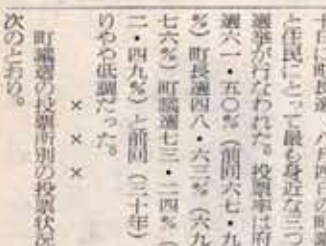 十日に町長選、八月四日の町議
と住民にとって最も身近な三つ
選挙が行なわれた。投票率は府
選六一・五〇％（前回六七・九
％）町長選四八・六三％（六九
七六％）町議選七三・二四％（
二・四九％）と前回（三十年）
りやや低調だった。
×　×　×
町議選の投票所別の投票状況
次のとおり。